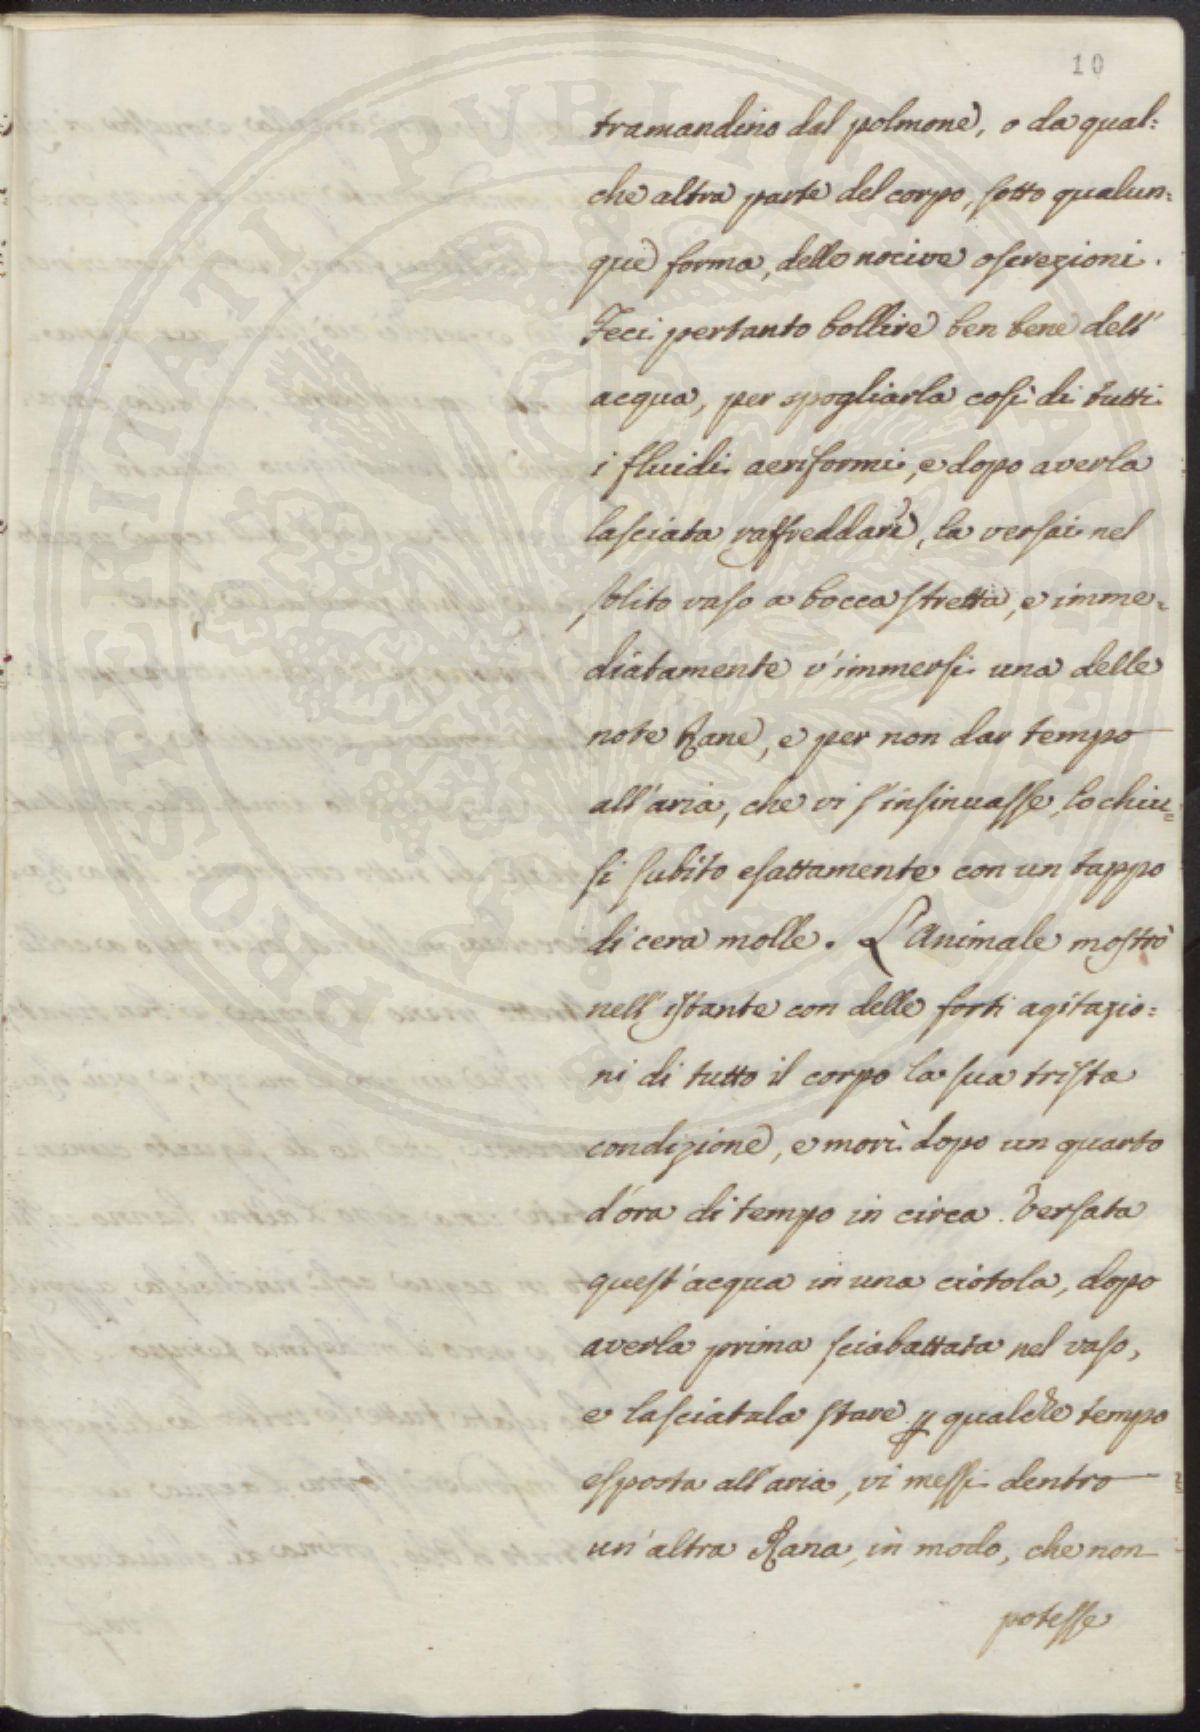 10
tramandino dal polmone, o da qual=
che altra parte del corpo, sotto qualun=
que forma, delle nocive escrezioni.
Feci pertanto bollire ben bene dell'
acqua, per spogliarla così di tutti
i fluidi aeriformi, e dopo averla
lasciata raffreddare, la versai nel
solito vaso a bocca stretta, e imme=
diatamente v'immersi una delle
note Rane, e per non dar tempo
all'aria, che vi s'insinuasse, lo chiu=
si subito esattamente con un tappo
di cera molle. L'Animale mostrò
nell'istante con delle forti agitazio=
ni di tutto il corpo la sua trista
condizione, e morì dopo un quarto
d'ora di tempo in circa. Versata
quest'acqua in una ciotola, dopo
averla prima sciabattata nel vaso,
e lasciatala stare p qualche tempo
esposta all'aria, vi messi dentro
un'altra Rana, in modo, che non
potesse
PROSPERITATI PVBLICAE